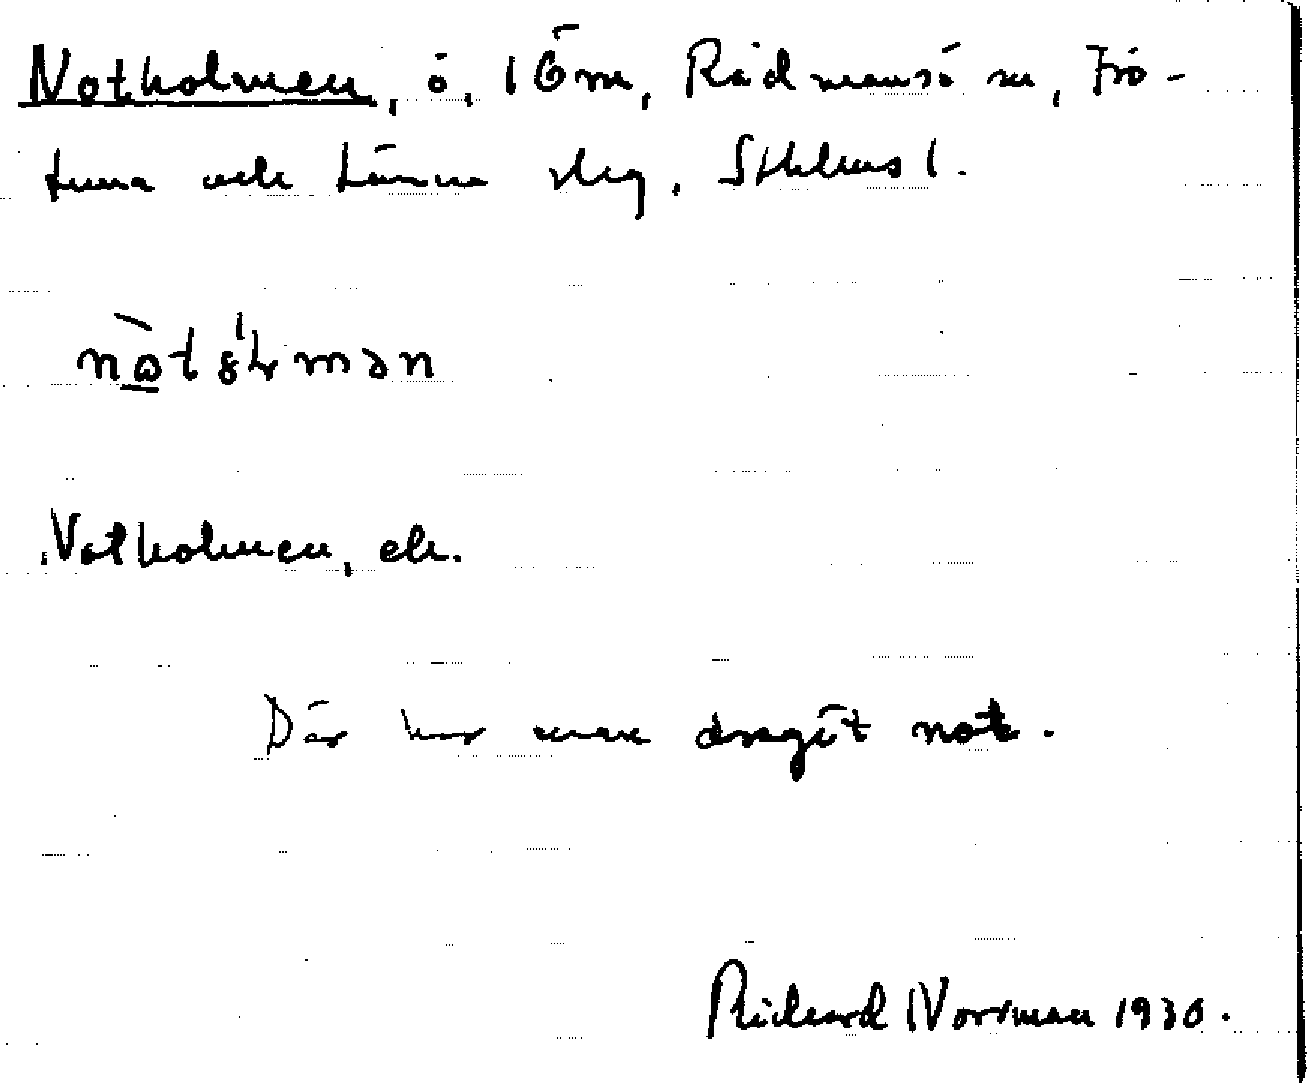 Notholmen, ö, 1 Öm, Rådmansö sn, Frö-
tuna och Länna slg, Sthlms l.
Notholmen, ek.
Där har man dragit not.
Rickard Norrman 1930.